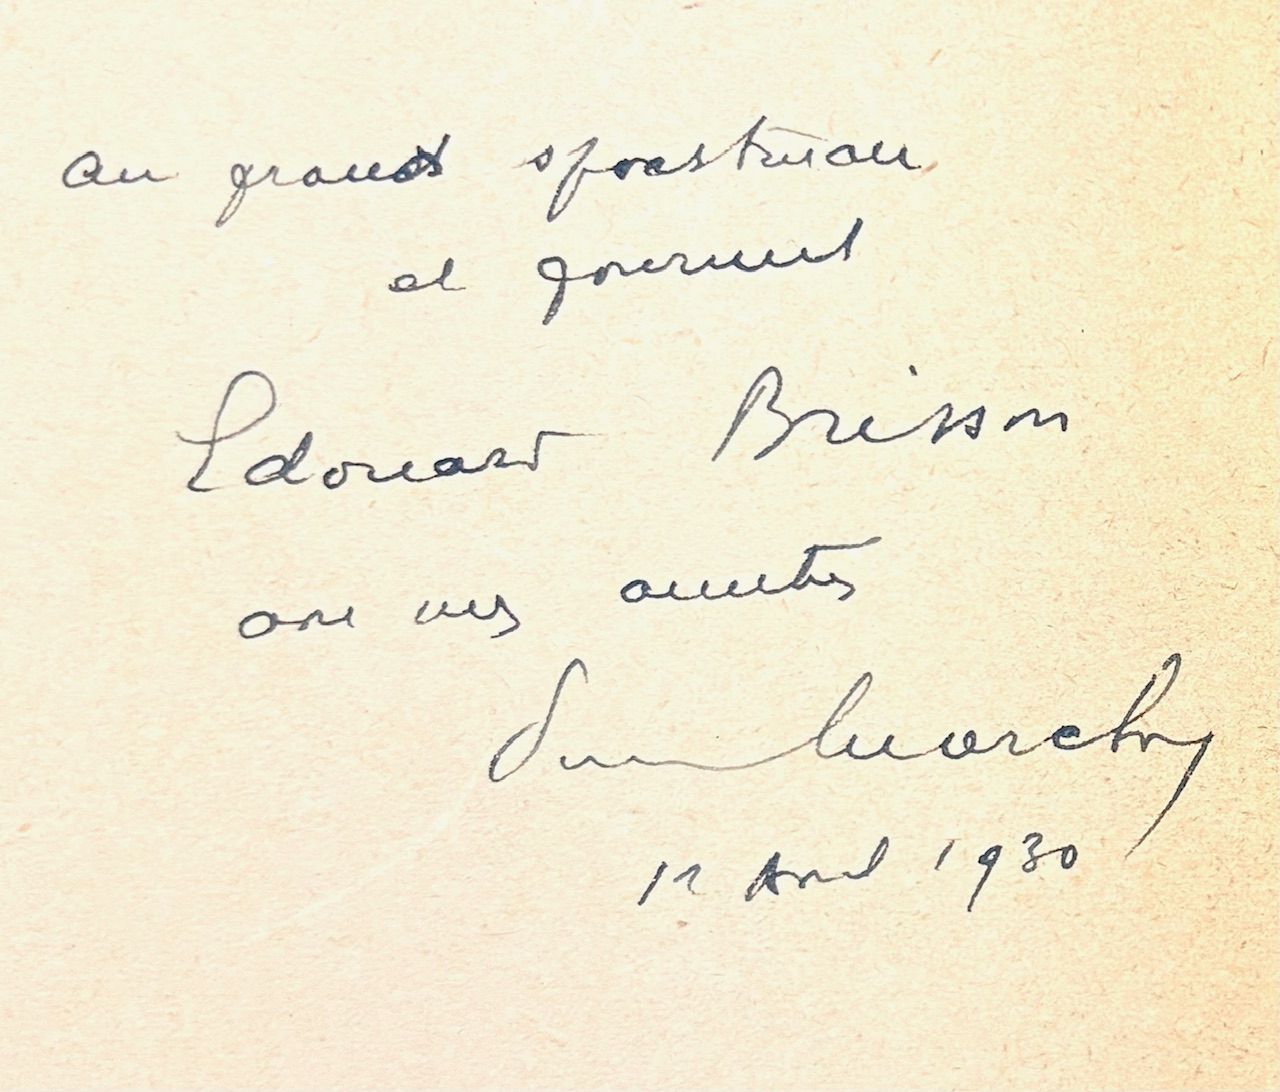 Au grand sportman
et gourmet
Edouard Brisson
avec mes amitiés
12 Avril 1930